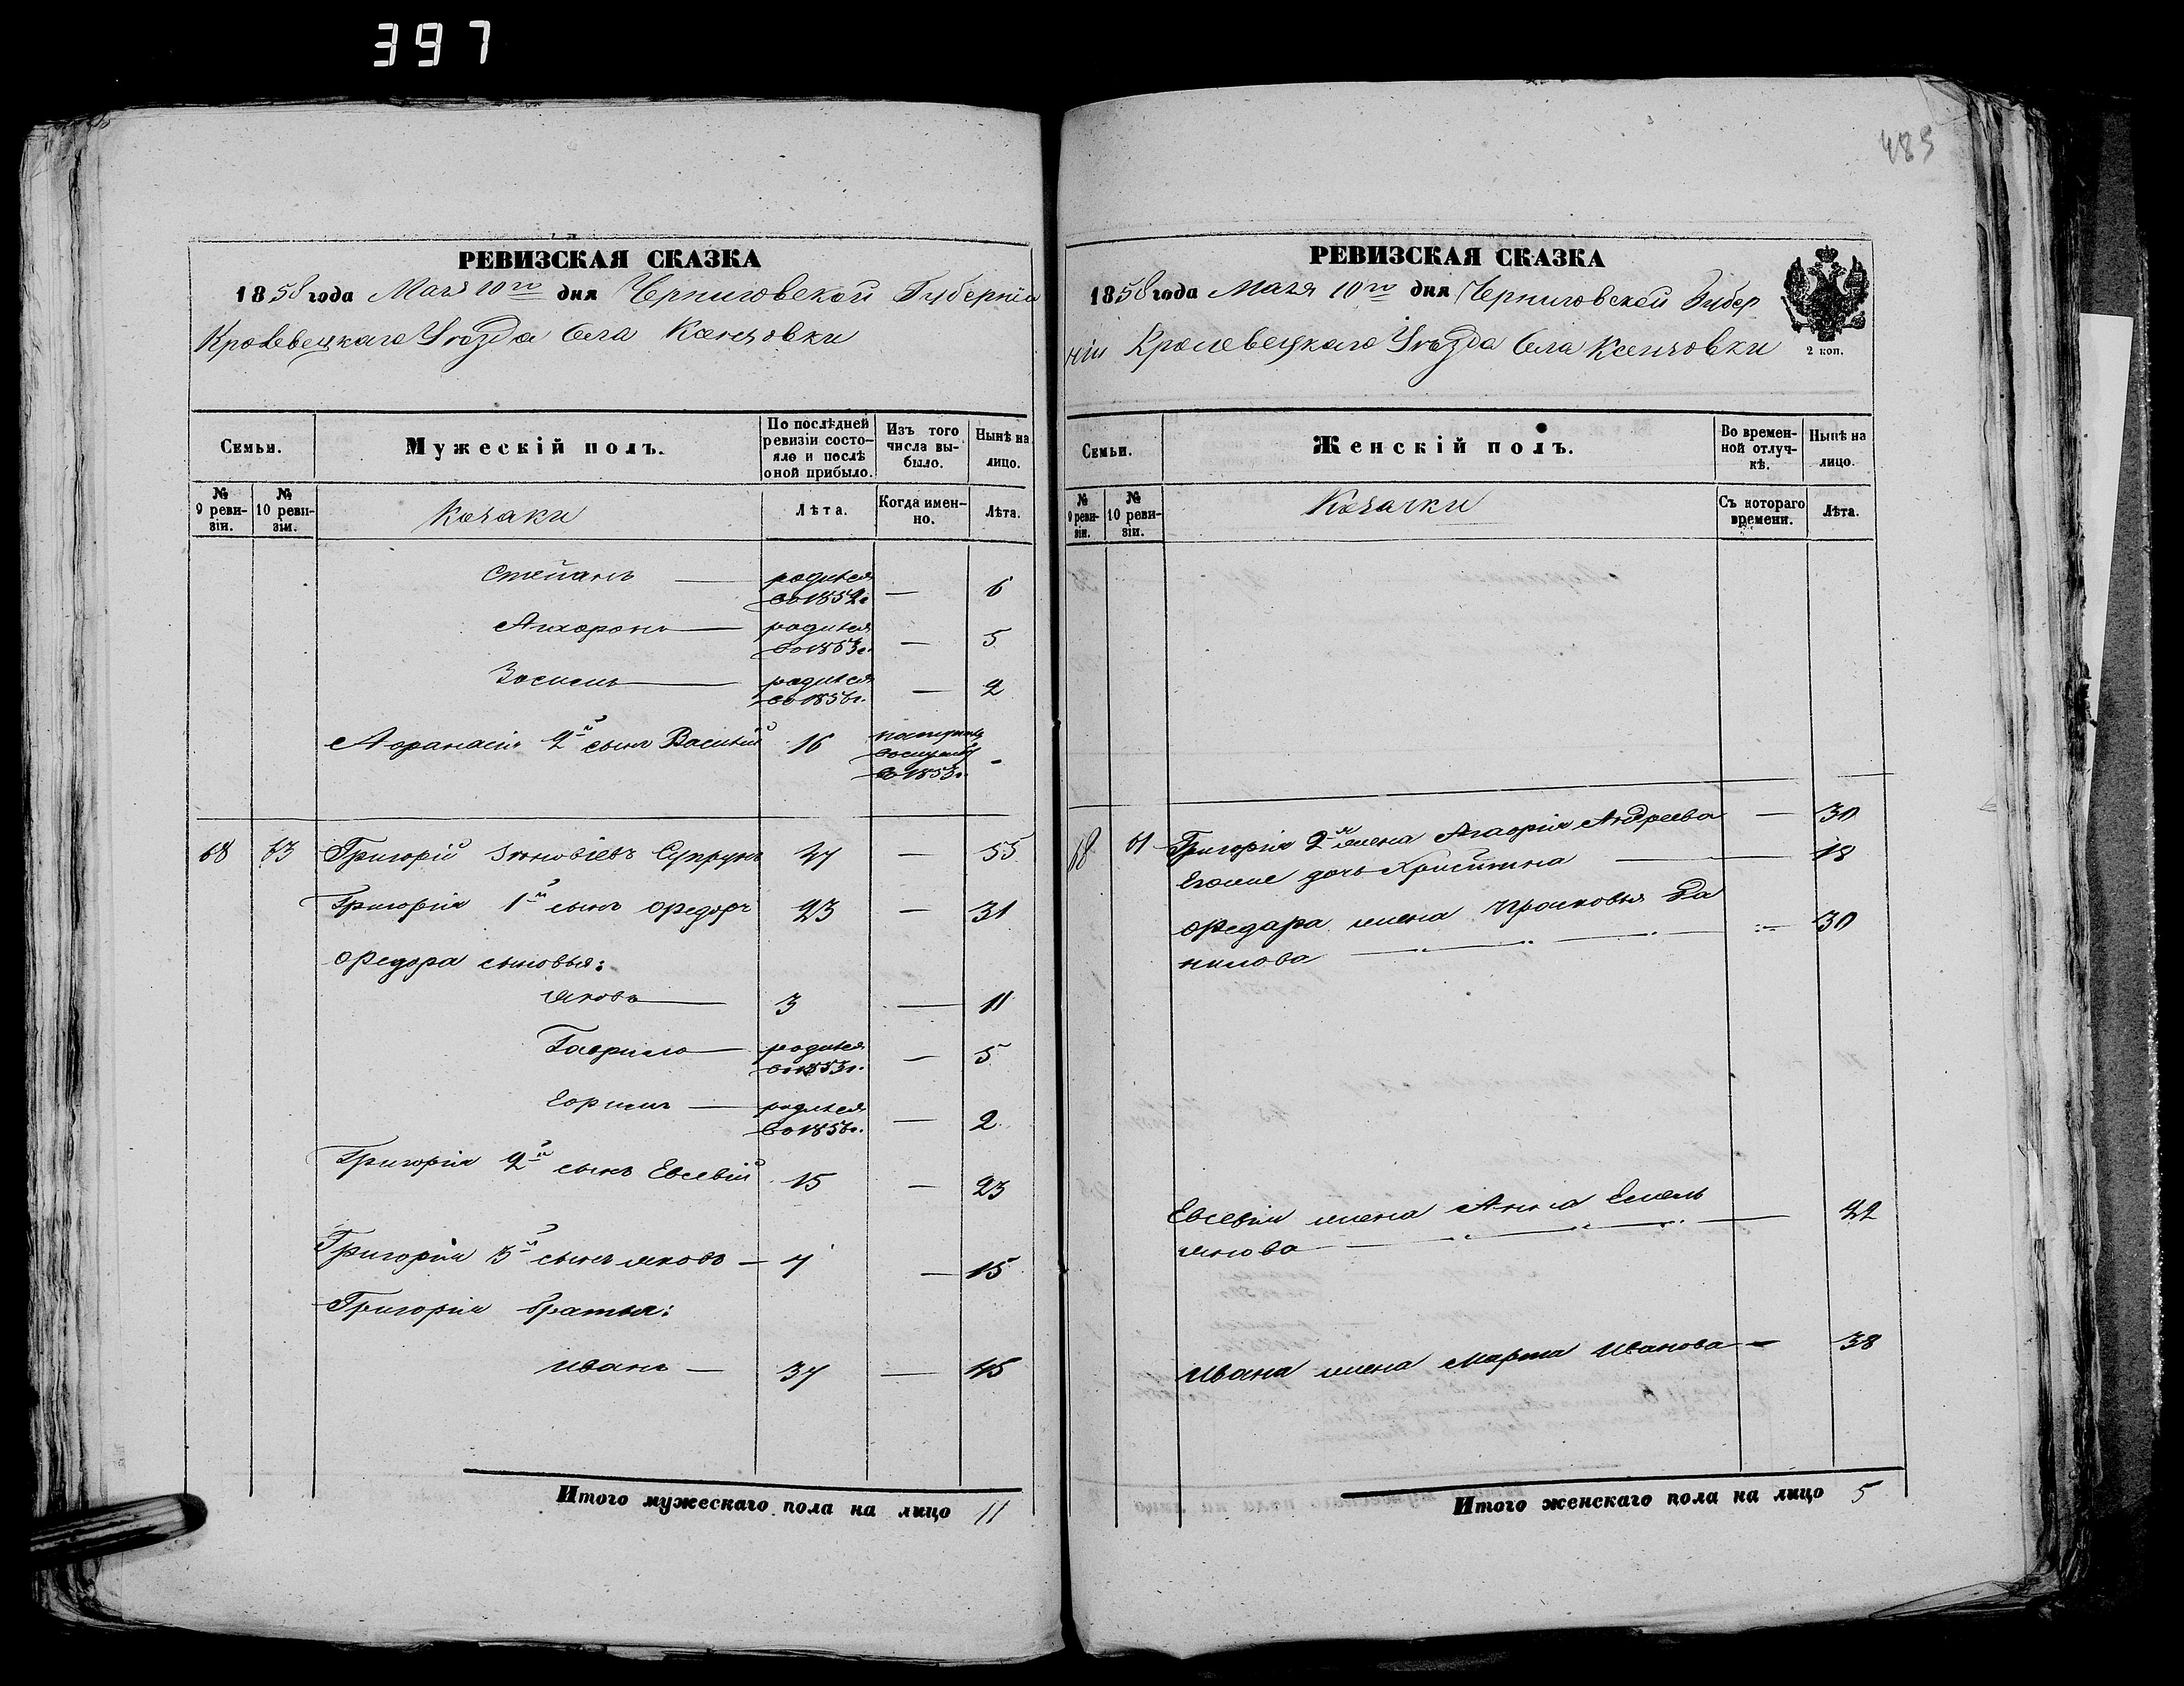 397
РЕВИЗСКАЯ СКАЗКА
1858 года Мая 10го дня Черниговской Губерніи
Кролевецкаго Уѣзда Села
Семьи.
Мужескій полъ.
По послѣдней ревизіи состояло и послѣ оной прибыло.
Изъ того числа выбыло.
Нынѣ на лицо.
№ 9 ревизіи.
№ 10 ревизіи.
Козаки
Лѣта.
Когда именно.
Лѣта.
Степанъ — родился во 1852 г — 6
— родился во 1853 г. — 5
— родился во 1856 г. — 2
Афанасія 2й сынъ Василий 16 во 1853 г. -
68 63 Григорій Зиновіевъ Супрунъ 47 — 55
Григорія 1й сынъ Федоръ 23 — 31
Федора сыновья:
Яковъ — 3 — 11
Гаврило — родился во 1853 г. — 5
Ефимъ — родился во 1856 г. — 2
Григорія 2й сынъ Евсевій 15 — 23
Григорія 3й сынъ Яковъ — 7 — 15
Григорія братья:
Иванъ — 37 — 45
Итого мужескаго пола на лицо 11
485
РЕВИЗСКАЯ СКАЗКА
1858 года Мая 10го дня Черниговской Губер
ніи Кролевецкаго Уѣзда Села
2 коп.
Семьи.
Женскій полъ.
Во временной отлучкѣ.
Нынѣ на лицо.
№ 9 ревизіи.
№ 10 ревизіи.
Козачки
Съ котораго времени.
Лѣта.
68 Григорія 2я жена Агафія Андреева — 30
Егоже дочь Христина — 18
Федора жена Прасковья Да
нилова — 30
Евсевія жена Анна Емель
янова — 22
Ивана жена Марта Иванова — 38
Итого женскаго пола на лицо 5